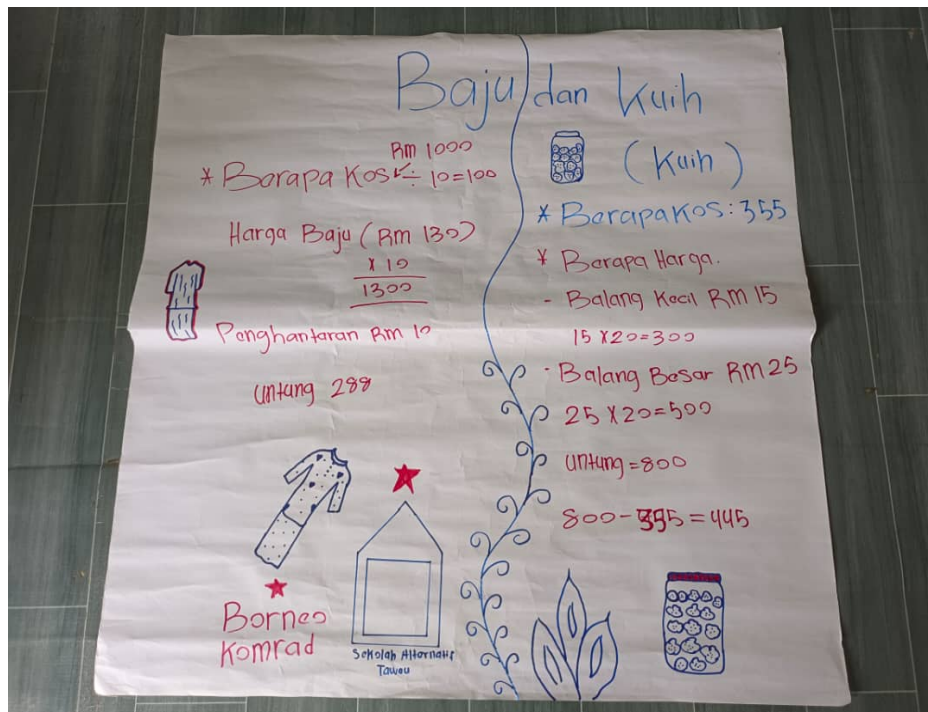 Baju dan Kuih
Rm 1000
* Berapa Kos ÷ 10=100
Harga Baju (Rm 130)
x 10
1300
Penghantaran Rm 10
Untung 288
Borneo
Komrad
Sekolah Alternatif
Tawau
(Kuih)
* Berapa Kos: 355
* Berapa Harga.
- Balang Kecil Rm 15
15 x 20=300
- Balang Besar Rm 25
25 x 20=500
Untung = 800
800-355 = 445